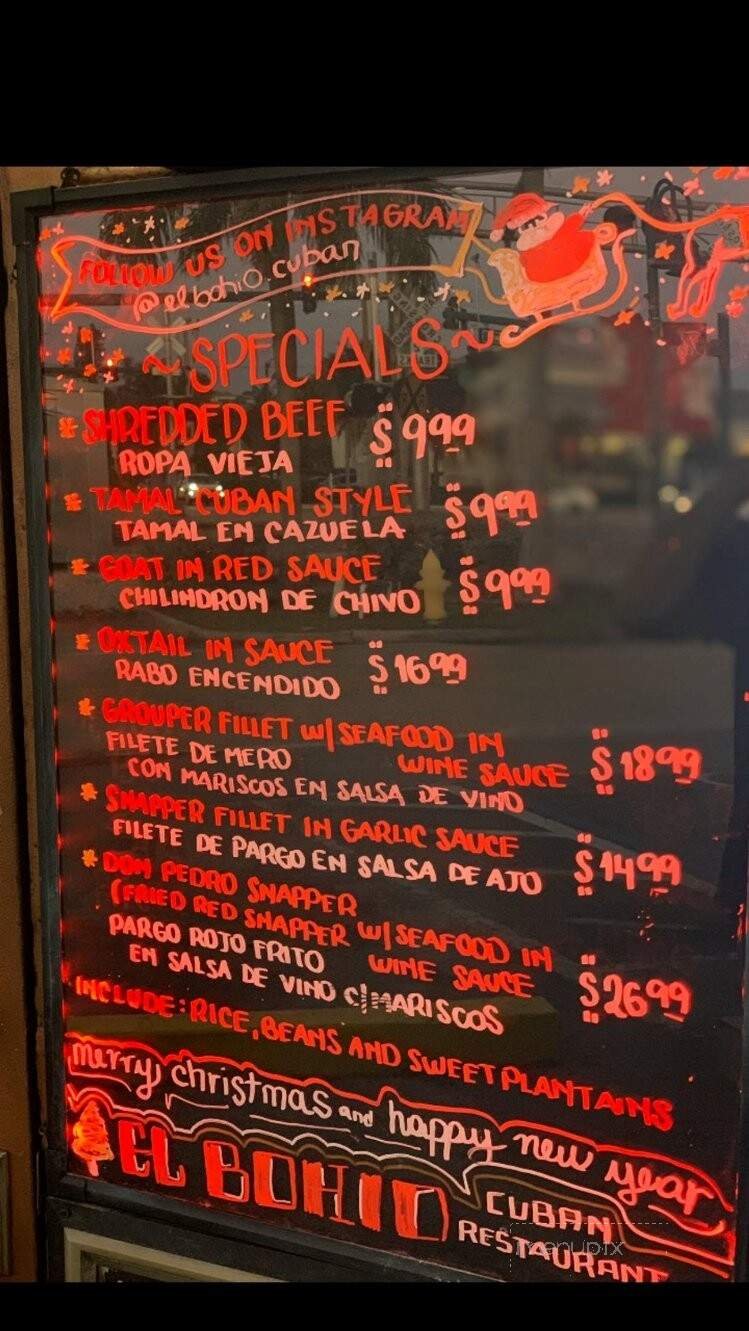 FOLLOW US ON INSTAGRAM
@elbohio.cuban
~SPECIALS~
* SHREDDED BEEF $9.99
ROPA VIEJA
* TAMAL CUBAN STYLE $9.99
TAMAL EN CAZUELA
* GOAT IN RED SAUCE $9.99
CHILINDRON DE CHIVO
* OXTAIL IN SAUCE $16.99
RABO ENCENDIDO
* GROUPER FILLET W/ SEAFOOD IN
WINE SAUCE $18.99
FILETE DE MERO
CON MARISCOS EN SALSA DE VINO
* SNAPPER FILLET IN GARLIC SAUCE $14.99
FILETE DE PARGO EN SALSA DE AJO
* DON PEDRO SNAPPER
(FRIED RED SNAPPER W/ SEAFOOD IN
WINE SAUCE $26.99
PARGO ROJO FRITO
EN SALSA DE VINO C/MARISCOS
INCLUDE: RICE, BEANS AND SWEET PLANTAINS
merry christmas and happy new year
EL BOHIO
CUBAN
RESTAURANT
menupix